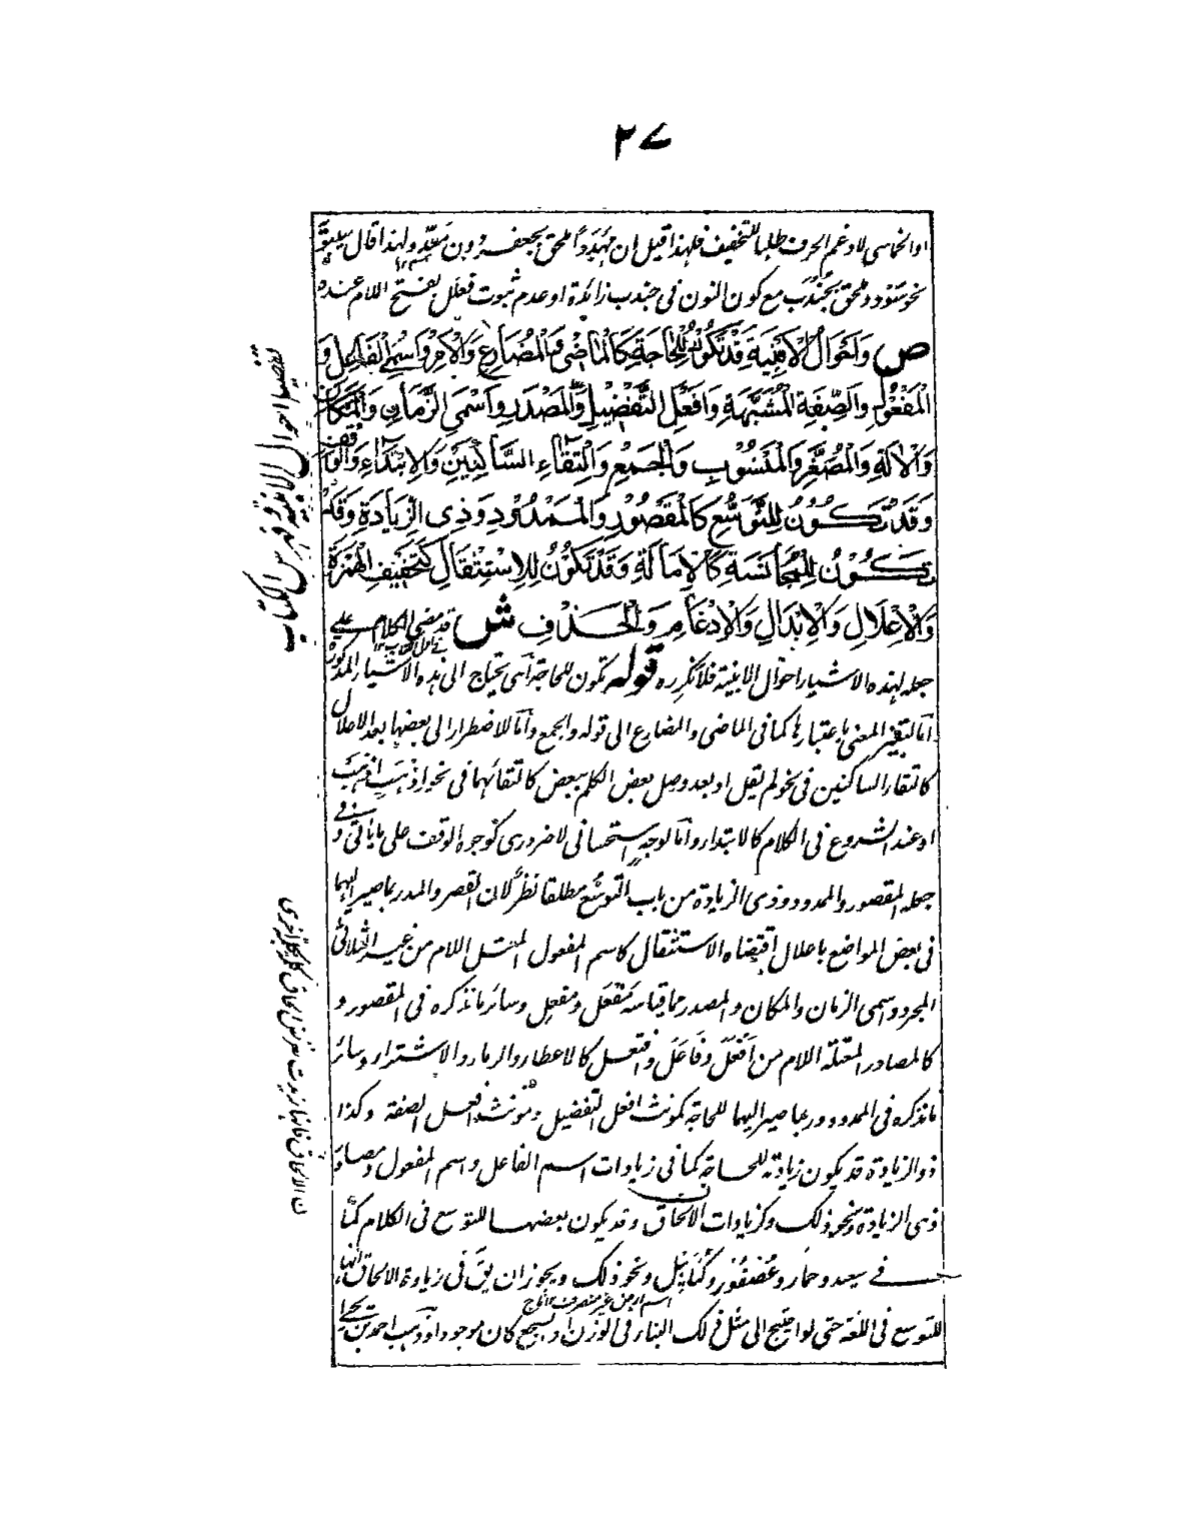 ٢٧
او الخماسى لادغم الحرف طلبا للتخفيف فلهذا قيل ان مَهْدَدًا ملحق بجعفر دون مَعَدٍّ ولهذا قال سيبويه
نحو سُودد ملحق بجُندَب مع كون النون فى جندب زائدة او عدم ثبوت فعلَل بفتح اللام عنده
ص وَاَحْوَالُ الْاَبْنِيَةِ قَدْ تَكُوْنُ لِلْحَاجَةِ كَالْمَاضِىْ وَالْمُضَارِعِ وَالْاَمْرِ وَاسْمِ الْفَاعِلِ وَ
الْمَفْعُوْلِ وَالصِّفَةِ الْمُشَبَّهَةِ وَاَفْعَلِ التَّفْضِيْلِ وَالْمَصْدَرِ وَاسْمَىِ الزَّمَانِ وَالْمَكَانِ
وَالْاٰلَةِ وَالْمُصَغَّرِ وَالْمَنْسُوْبِ وَالْجَمْعِ وَالْتِقَاءِ السَّاكِنَيْنِ وَالْاِبْتِدَاءِ وَالْوَقْفِ
وَقَدْ تَكُوْنُ لِلتَّوَسُّعِ كَالْمَقْصُوْرِ وَالْمَمْدُوْدِ وَذِى الزِّيَادَةِ وَقَدْ
تَكُوْنُ لِلْمُجَانَسَةِ كَالْاِمَالَةِ وَقَدْ تَكُوْنُ لِلْاِسْتِثْقَالِ كَتَخْفِيْفِ الْهَمْزَةِ
وَالْاِعْلَالِ وَالْاِبْدَالِ وَالْاِدْغَامِ وَالْحَذْفِ ش قد مضى الكلام على
جعله لهذه الاشياء احوال الابنية فلا نكرره قوله تكون للحاجة اى يحتاج الى هذه الاشياء المذكورة
اما لتغيير المعنى باعتبارها كما فى الماضى والمضارع الى قوله والجمع واما للاضطرار الى بعضها بعد الاعلال
كالتقاء الساكنين فى نحو لم يقل او بعد وصل بعض الكلم ببعض كالتقائهما فى نحو اذهب اذهب
او عند الشروع فى الكلام كالابتداء واما لوجه استحسانى لا ضرورى كوجوه الوقف على ما يأتى وفى
جعله المقصور والممدود وذى الزيادة من باب التوسُّع مطلقا نظرٌ لان القصر والمد ربما صير اليهما
فى بعض المواضع باعلال اقتضاه الاستثقال كاسم المفعول المعتل اللام من غير الثلاثى
المجرد واسمى الزمان والمكان والمصدر مما قياسه مَفعَل ومفعِل وسائر ما نذكره فى المقصور و
كالمصادر المعتلة اللام من اَفْعَلَ وفَاعَلَ وافتعل كالاعطاء والرماء والاشتراء وسائر
ما نذكره فى الممدود وربما صير اليهما للحاجة كمونث افعل التفضيل ومونث افعل الصفة وكذا
ذو الزيادة قد يكون زيادته للحاجة كما فى زيادات اسم الفاعل واسم المفعول ومصادر
ذى الزيادة ونحو ذلك وكزيادات الالحاق وقد يكون بعضها للتوسع فى الكلام كما
فى سعيد وحمار وعُصفُور وكُنَابِيْل ونحو ذلك ويجوز ان يقَ فى زيادة الالحاق انها
للتوسع فى اللغة حتى لو احتيج الى مثل ذلك البناء فى الوزن او السجع كان موجودا وذهب احمد بن يحيى
تفصيل احوال الابنية